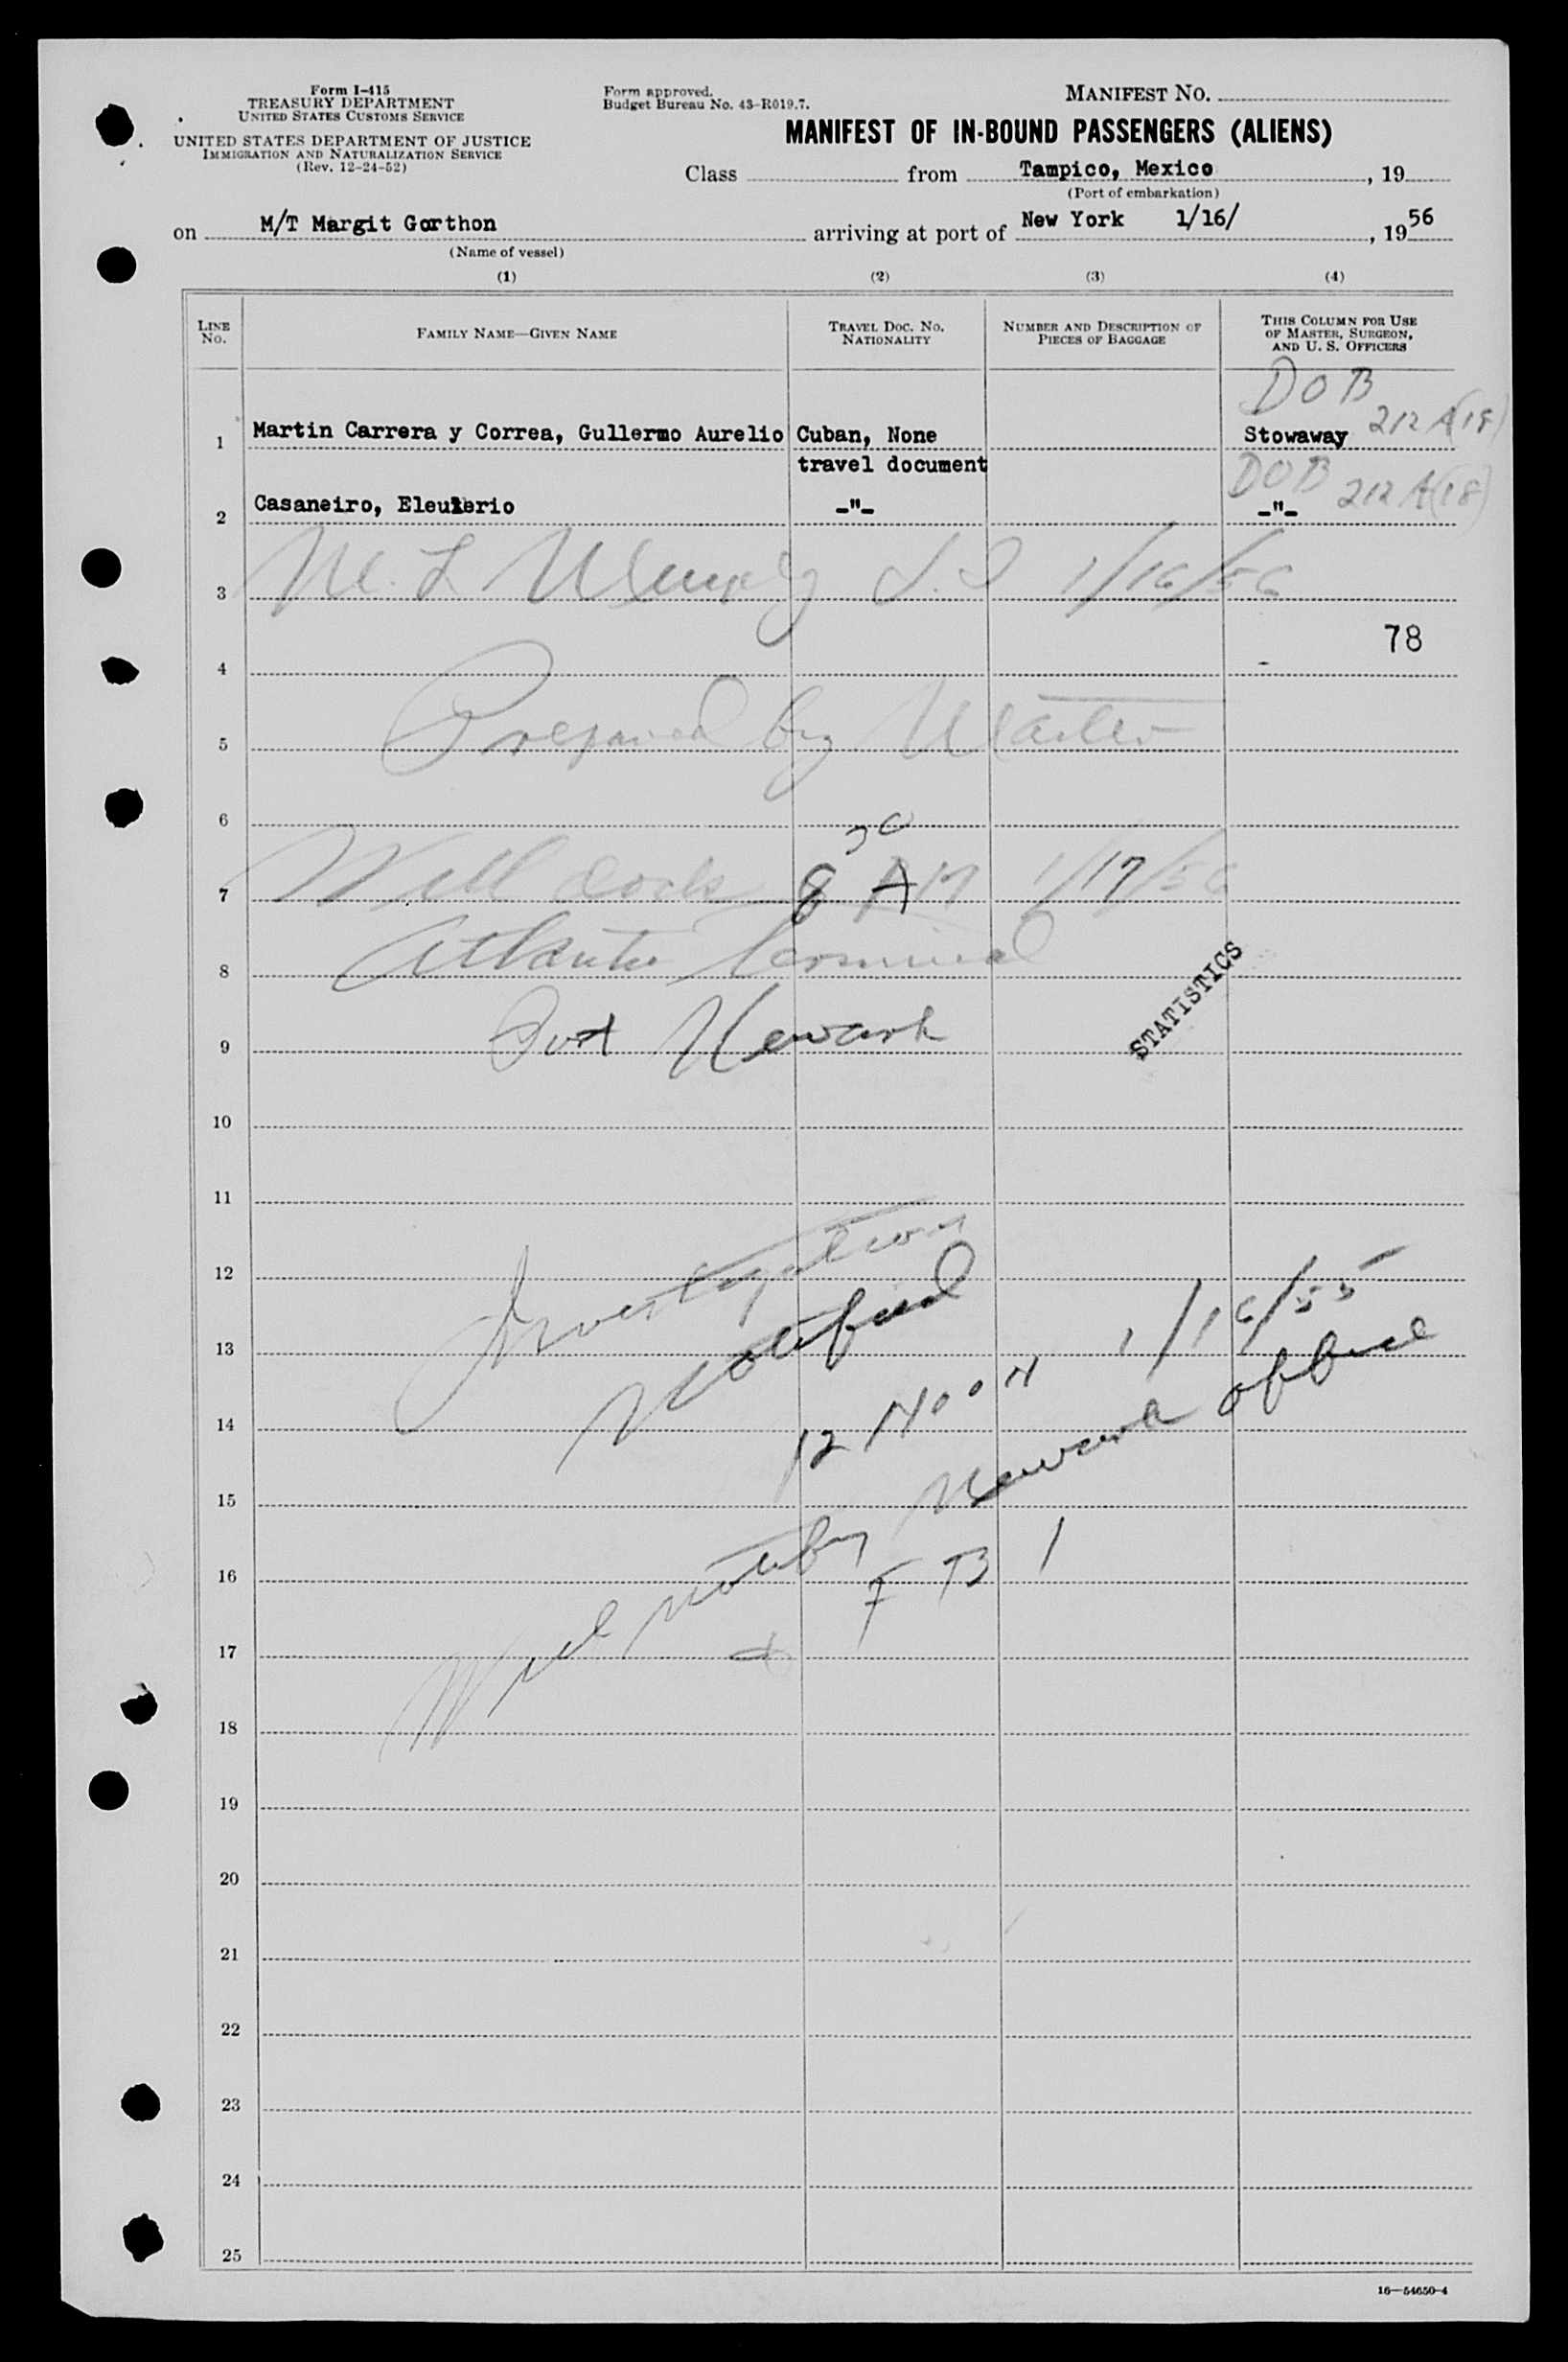 Form I-415
TREASURY DEPARTMENT
UNITED STATES CUSTOMS SERVICE
UNITED STATES DEPARTMENT OF JUSTICE
IMMIGRATION AND NATURALIZATION SERVICE
(Rev. 12-24-52)
Form approved.
Budget Bureau No. 43-R019.7.
MANIFEST NO.
MANIFEST OF IN-BOUND PASSENGERS (ALIENS)
Class from Tampico, Mexico, 19
(Port of embarkation)
on M/T Margit Gorthon arriving at port of New York 1/16/, 1956
(Name of vessel)
(1) (2) (3) (4)
LINE No. FAMILY NAME—GIVEN NAME TRAVEL DOC. NO. NATIONALITY NUMBER AND DESCRIPTION OF PIECES OF BAGGAGE THIS COLUMN FOR USE OF MASTER, SURGEON, AND U. S. OFFICERS
DOB
1 Martin Carrera y Correa, Gullermo Aurelio Cuban, None Stowaway 212 A(18)
travel document
DOB 212 A(18)
2 Casaneiro, Eleuterio -"- -"-
3 M. L. 1/16/56
78
4
5 Prepared by Master
6
7 Will dock 8 30 AM 1/17/56
8 Atlantic Terminal
STATISTICS
9 Port Newark
10
11
12 Investigation
13 Notified
14 12 Noon 1/16/55
15
16 Will notify Newark office
17 & FBI
18
19
20
21
22
23
24
25
16—54650-4